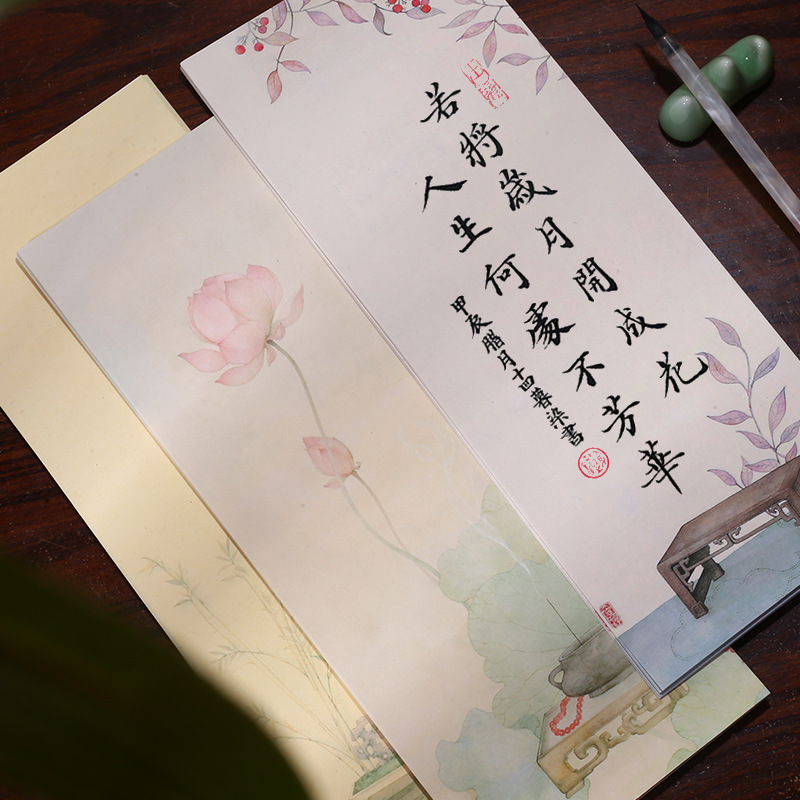 若將歲月開成花
人生何處不芳華
甲辰臘月十四暮染書